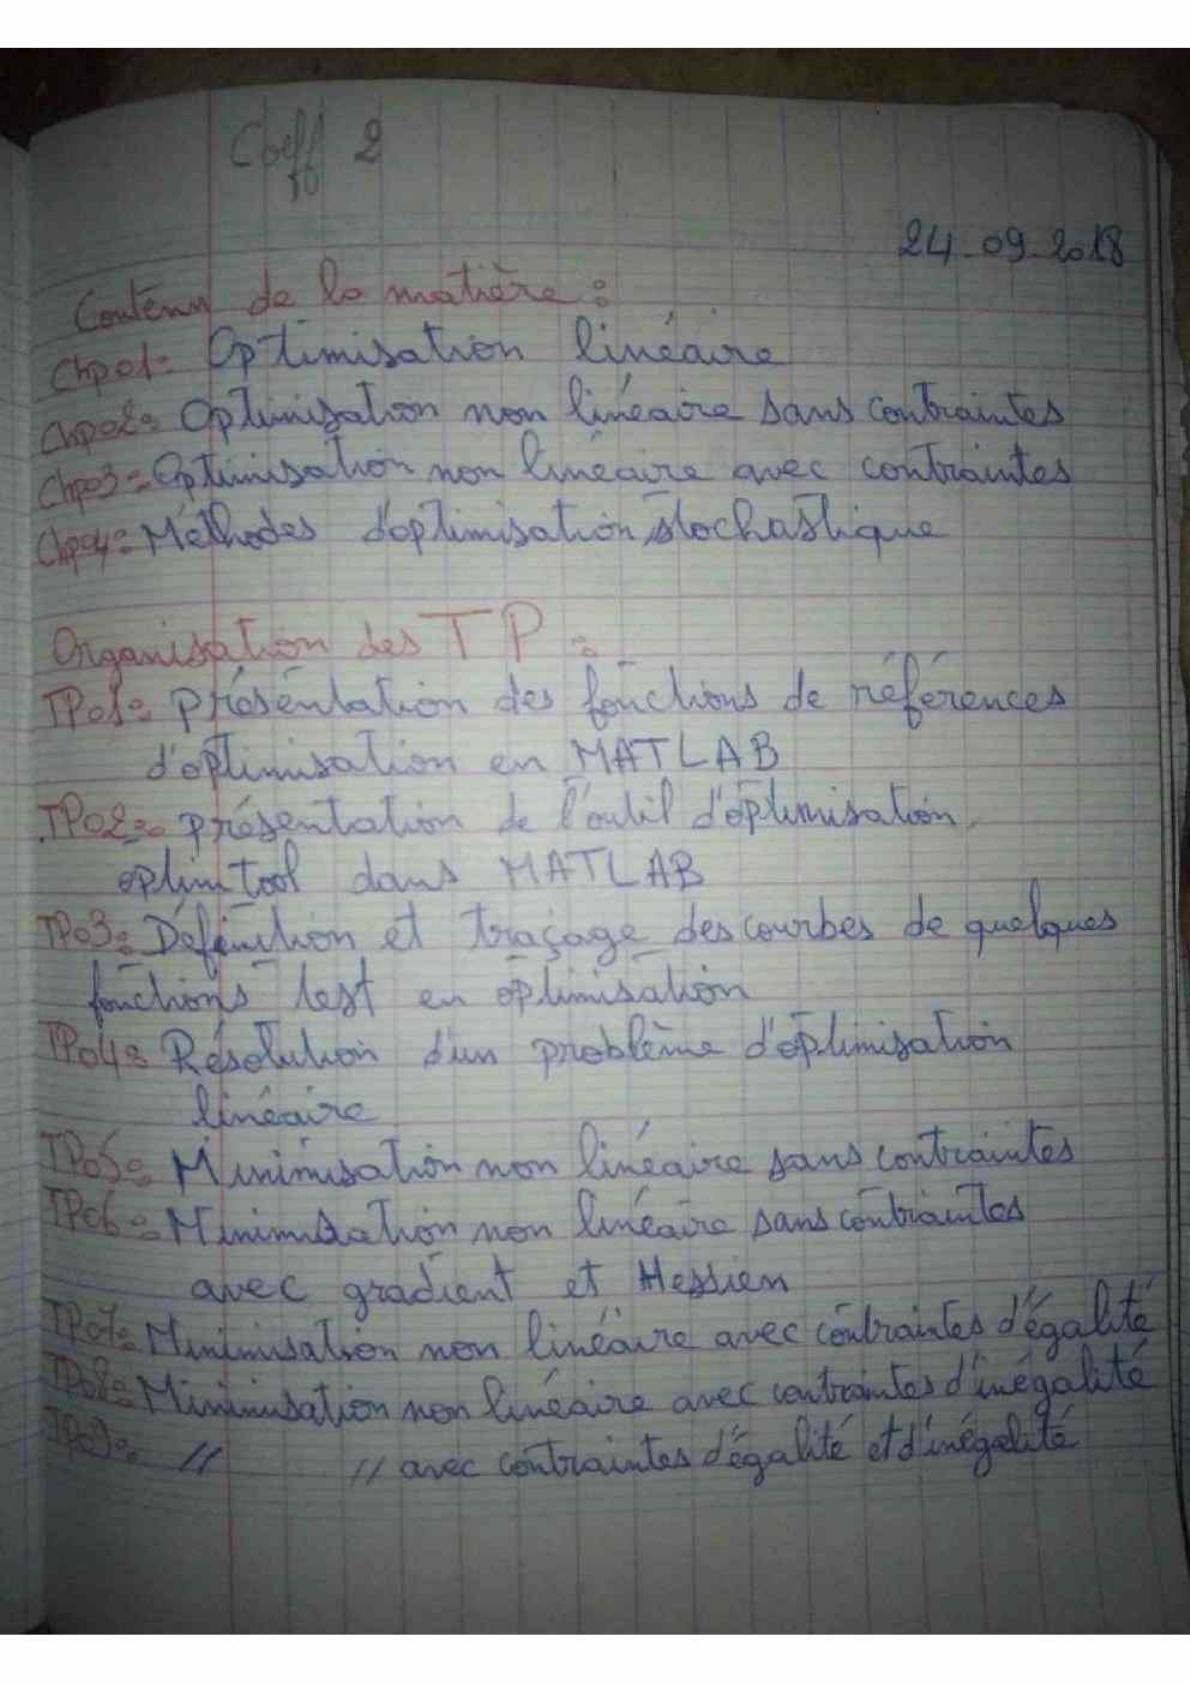 Coeff 2
24-09-2018
Contenu de la matière :
Chp01: Optimisation linéaire
Chp02: Optimisation non linéaire sans contraintes
Chp03: Optimisation non linéaire avec contraintes
Chp04: Méthodes d'optimisation stochastique
Organisation des TP :
TP01: présentation des fonctions de références
d'optimisation en MATLAB
TP02: présentation de l'outil d'optimisation
optimtool dans MATLAB
TP03: Définition et traçage des courbes de quelques
fonctions test en optimisation
TP04: Résolution d'un problème d'optimisation
linéaire
TP05: Minimisation non linéaire sans contraintes
TP06: Minimisation non linéaire sans contraintes
avec gradient et Hessien
TP07: Minimisation non linéaire avec contraintes d'égalité
TP08: Minimisation non linéaire avec contraintes d'inégalité
TP09: // // avec contraintes d'égalité et d'inégalité